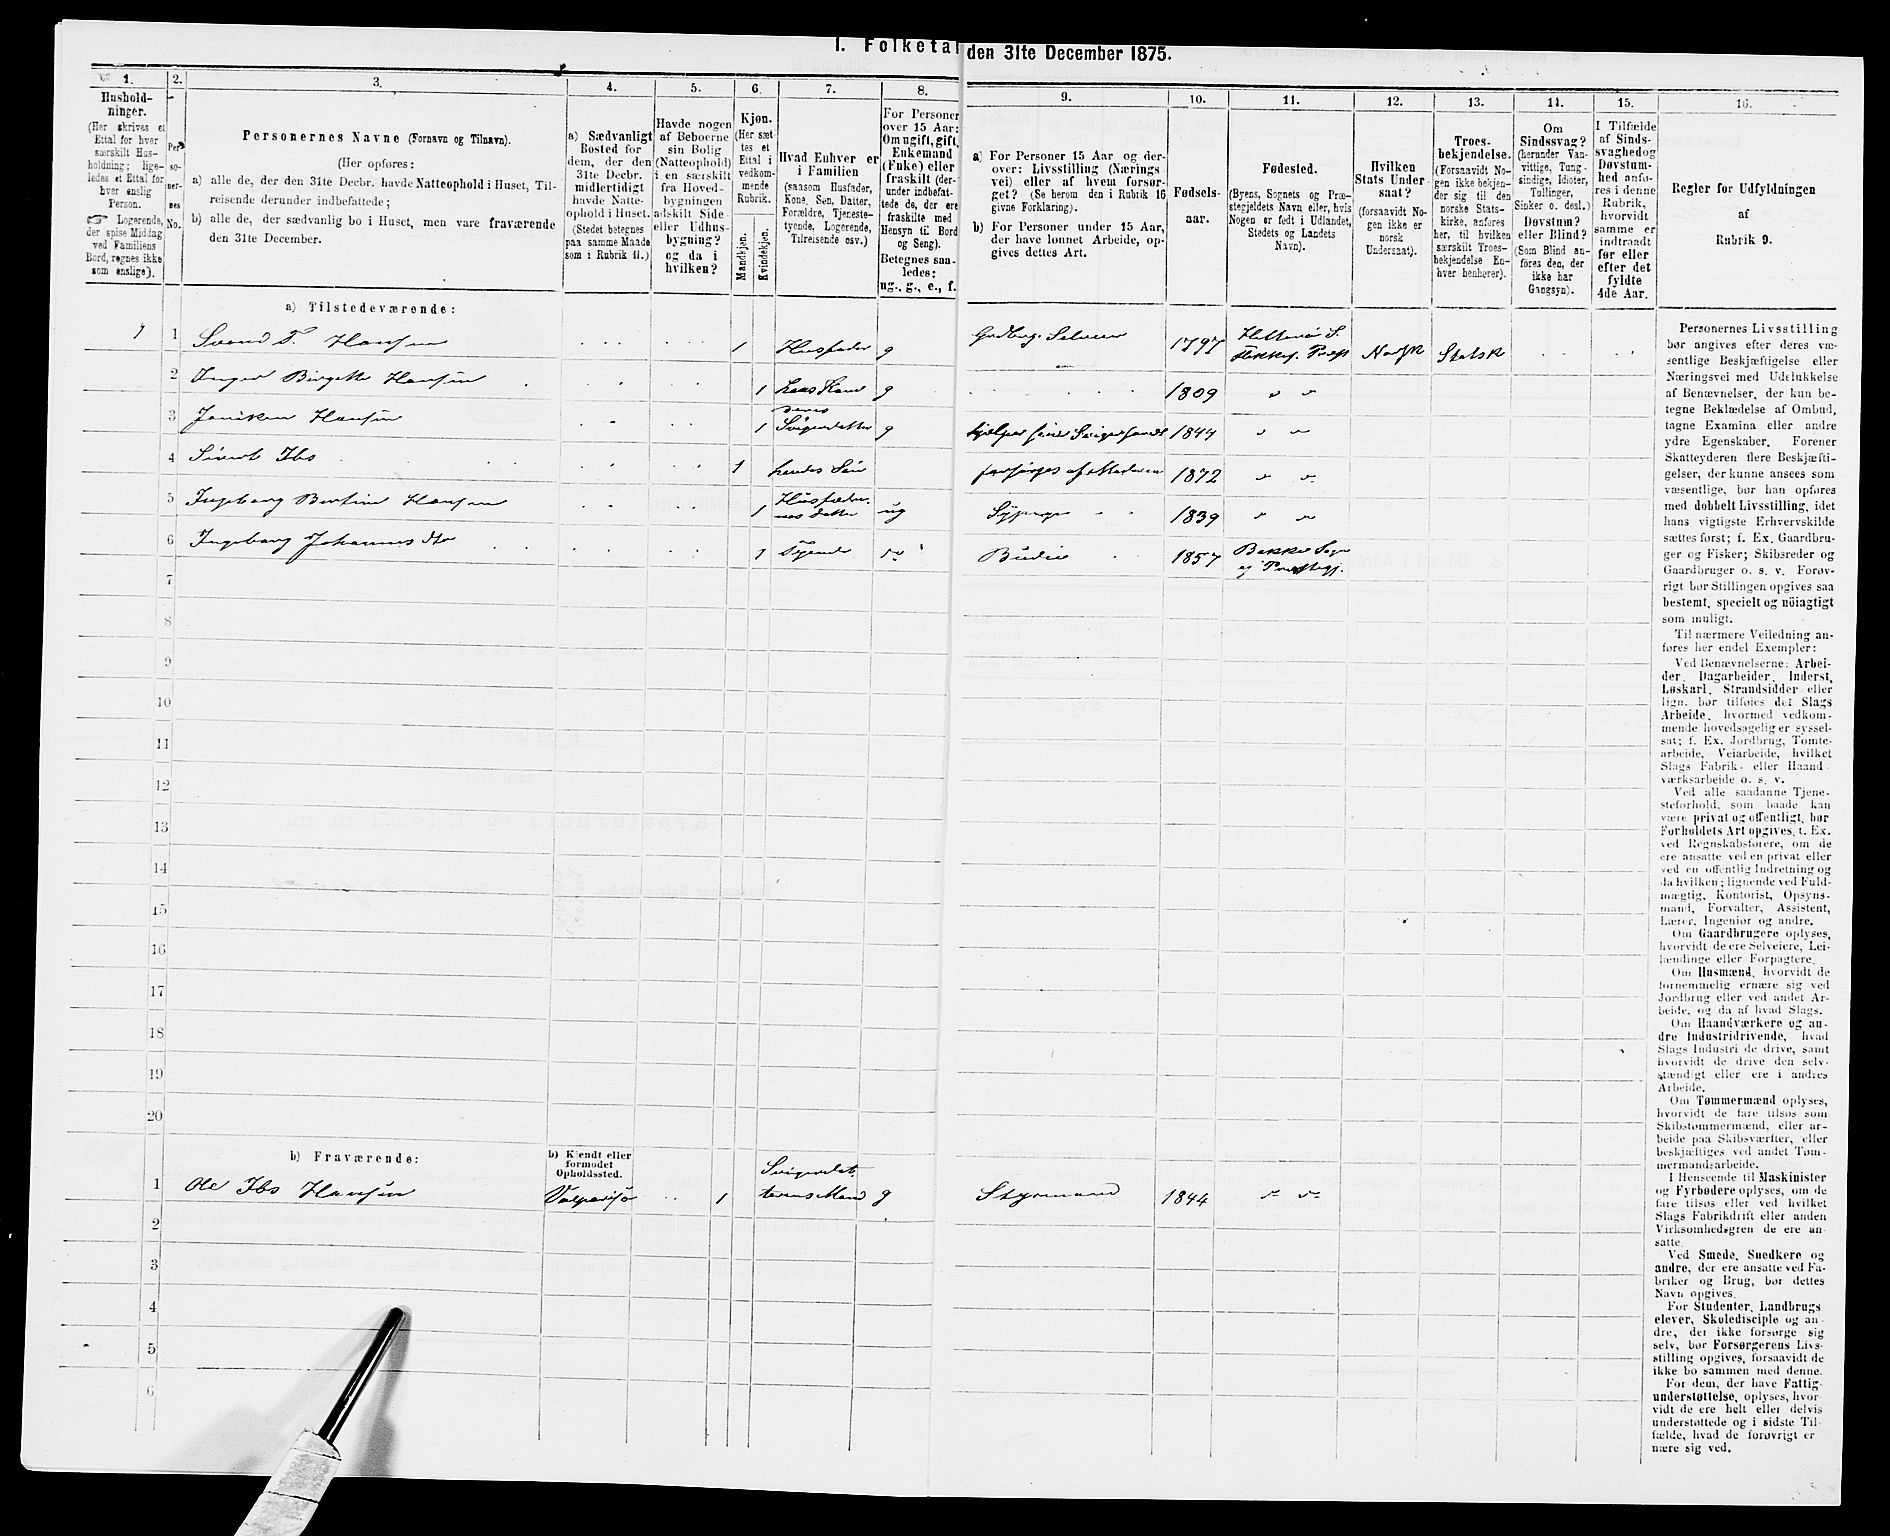 I. Folketal
den 31te December 1875.
1.
Hushold-
ninger.
(Her skrives et
Ettal for hver
særskilt Hus-
holdning; lige-
ledes et Ettal for
hver enslig
Person.
☞ Logerende,
der spise Middag
ved Familiens
Bord, regnes ikke
som enslige).
2.
Per-
so-
ner-
nes
No.
3.
Personernes Navne (Fornavn og Tilnavn).
(Her opføres:
a) alle de, der den 31te Decbr. havde Natteophold i Huset, Til-
reisende derunder indbefattede;
b) alle de, der sædvanlig bo i Huset, men vare fraværende
den 31te December.
4.
a) Sædvanligt
Bosted for
dem, der den
31te Decbr.
midlertidigt
havde Natte-
ophold i Huset.
(Stedet betegnes
paa samme Maade
som i Rubrik 11.)
5.
Havde nogen
af Beboerne
sin Bolig
(Natteophold)
i en særskilt
fra Hoved-
bygningen
adskilt Side-
eller Udhus-
bygning?
og da i
hvilken?
6.
Kjøn.
(Her sæt-
tes et
Ettal i
vedkom-
mende
Rubrik.
Mandkjøn.
Kvindekjøn.
7.
Hvad Enhver er
i Familien
(saasom Husfader,
Kone, Søn, Datter,
Forældre, Tjeneste-
tyende, Logerende,
Tilreisende osv.)
8.
For Personer
over 15 Aar:
Om ugift, gift,
Enkemand
(Enke) eller
fraskilt (der-
under indbefat-
tede de, der ere
fraskilte med
Hensyn til Bord
og Seng).
Betegnes saa-
ledes:
ug., g., e., f.
9.
a) For Personer 15 Aar og der-
over: Livsstilling (Nærings-
vei) eller af hvem forsør-
get? (Se herom den i Rubrik 16
givne Forklaring).
b) For Personer under 15 Aar,
der have lønnet Arbeide, op-
gives dettes Art.
10.
Fødsels-
aar.
11.
Fødested.
(Byens, Sognets og Præ-
stegjeldets Navn eller, hvis
Nogen er født i Udlandet,
Stedets og Landets
Navn).
12.
Hvilken
Stats Under
saat?
(forsaavidt No-
gen ikke er
norsk
Undersaat).
13.
Troes-
bekjendelse.
(Forsaavidt No-
gen ikke bekjen-
der sig til den
norske Stats-
kirke, anføres
her, til hvilken
særskilt Troes-
bekjendelse En-
hver henhører).
14.
Om
Sindssvag?
(herunder Van-
vittige, Tung-
sindige, Idioter,
Tullinger,
Sinker o. desl.)
Døvstum?
eller Blind?
(Som Blind an-
føres den, der
ikke har
Gangsyn).
15.
I Tilfælde
af Sinds-
svaghed og
Døvstum-
hed anfø-
res i denne
Rubrik,
hvorvidt
samme er
indtraadt
før eller
efter det
fyldte
4de Aar.
16.
Regler for Udfyldningen
af
Rubrik 9.
a) Tilstedeværende:
1 1 Svend T. Hansen 1 Husfader g Selveier 1797 Hitterø S. Norsk Statsk
2 Inger Birgitte Hansen 1 hans Kone g 1809 " "
3 Janiken Hansen 1 Svigerdatter g 1844 " "
4 Sivert Ibs 1 hendes Søn forsørges af Moderen 1872 " "
5 Ingeborg Bertine Hansen 1 Husfade-
rens datter ug Sypige 1839 " "
6 Ingeborg Johannesdtr 1 Tyende do Budeie 1857 Bakke Sogn
og Præstegj.
7
8
9
10
11
12
13
14
15
16
17
18
19
20
b) Fraværende:
b) Kjendt eller
formodet
Opholdssted.
1 Ole Ibs Hansen Valparisø 1 Svigerdat-
terens Mand g Styrmand 1844 " "
2
3
4
5
6
Personernes Livsstilling
bør angives efter deres væ-
sentlige Beskjæftigelse eller
Næringsvei med Udelukkelse
af Benævnelser, der kun be-
tegne Beklædelse af Ombud,
tagne Examina eller andre
ydre Egenskaber. Forener
Skatteyderen flere Beskjæfti-
gelser, der kunne ansees som
væsentlige, bør han opføres
med dobbelt Livsstilling, idet
hans vigtigste Erhvervskilde
sættes først; f. Ex. Gaardbru-
ger og Fisker; Skibsreder og
Gaardbruger o. s. v. Forøv-
rigt bør Stillingen opgives saa
bestemt, specielt og nöiagtigt
som muligt.
Til nærmere Veiledning an-
føres her endel Exempler:
Ved Benævnelserne: Arbei-
der, Dagarbeider, Inderst,
Løskarl, Strandsidder eller
lign. bør tilføies det Slags
Arbeide, hvormed vedkom-
mende hovedsagelig er syssel-
sat; f. Ex. Jordbrug, Tomte-
arbeide, Veiarbeide, hvilket
Slags Fabrik- eller Haand-
værksarbeide o. s. v.
Ved alle saadanne Tjene-
steforhold, som baade kan
være privat og offentligt, bør
Forholdets Art opgives, t. Ex.
ved Regnskabsførere, om de
ere ansatte ved en privat eller
ved en offentlig Indretning og
da hvilken; lignende ved Fuld-
mægtig, Kontorist, Opsyns-
mand, Forvalter, Assistent,
Lærer, Ingeniør og andre.
Om Gaardbrugere oplyses,
hvorvidt de ere Selveiere, Lei-
lændinge eller Forpagtere.
Om Husmænd, hvorvidt de
fornemmelig ernære sig ved
Jordbrug eller ved andet Ar-
beide, og da af hvad Slags.
Om Haandværkere og an-
dre Industridrivende, hvad
Slags Industri de drive, samt
hvorvidt de drive den selv-
stændigt eller ere i andres
Arbeide.
Om Tømmermænd oplyses,
hvorvidt de fare tilsøs som
Skibstømmermænd, eller ar-
beide paa Skibsværfter, eller
beskjæftiges ved andet Tøm-
mermandsarbeide.
I Henseende til Maskinister
og Fyrbødere oplyses, om de
fare tilsøs eller ved hvilket
Slags Fabrikdrift eller anden
Virksomhedsgren de ere an-
satte.
Ved Smede, Snedkere og
andre, der ere ansatte ved Fa-
briker og Brug, bør dettes
Navn opgives.
For Studenter, Landbrugs
elever, Skoledisciple og an-
dre, det ikke forsørge sig
selv, bør Forsørgerens Livs-
stilling opgives, forsaavidt de
ikke bo sammen med denne.
For dem, der have Fattig-
understøttelse, oplyses, hvor-
vidt de ere helt eller delvis
understøttede og i sidste Til-
fælde, hvad de forøvrigt er
nære sig ved.